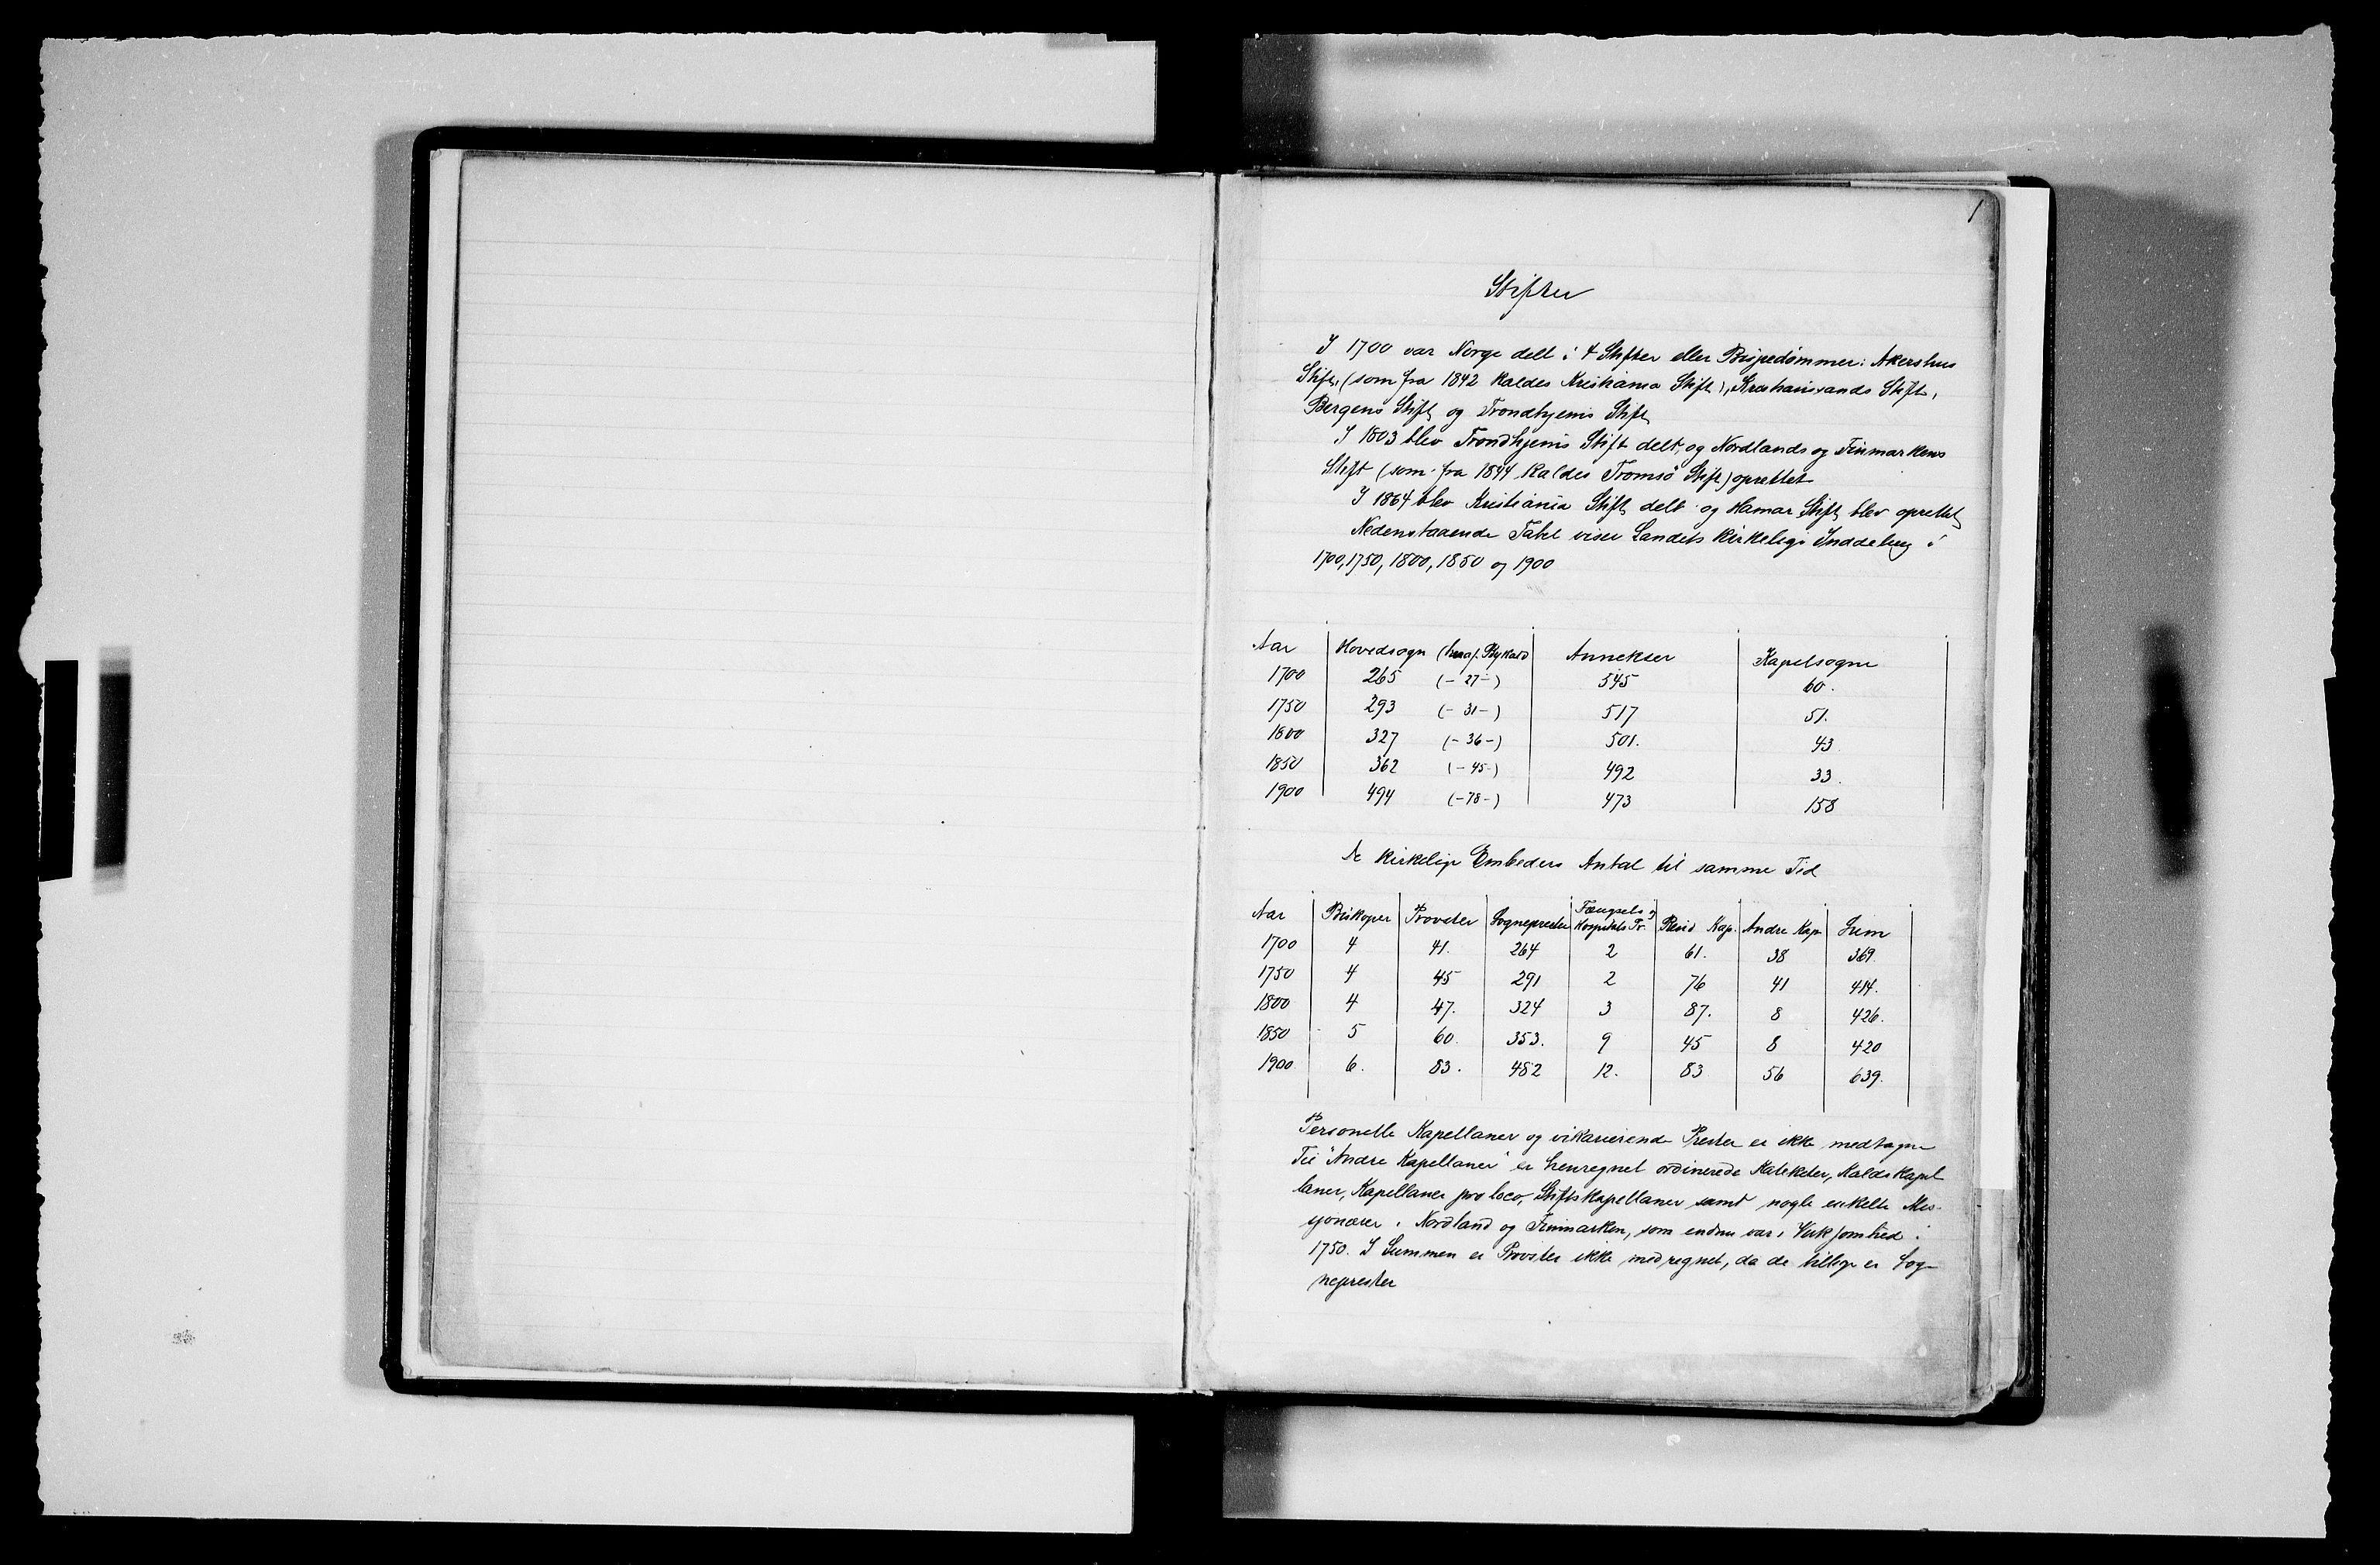 1
Stifter
I 1700 var Norge delt i 4 Stifter eller Bispedømmer: Akershus
Stift, (som fra 1842 kaldes Kristiania Stift), Kristianssands Stift,
Bergens Stift og Trondhjems Stift
I 1803 blev Trondhjems Stift delt, og Nordlands og Finmarkens
Stift (som fra 1844 kaldes Tromsö Stift) oprettet
I 1864 blev Kristiania Stift delt og Hamar Stift blev oprettet
Nedenstaaende Tabel viser Landets kirkelige Inddeling i
1700, 1750, 1800, 1850 og 1900
Aar Hovedsogn (hvoraf Bykald Annekser Kapelsogne
1700 265 (- 27 -) 545 60.
1750 293 (- 31 -) 517 51.
1800 327 (- 36 -) 501. 43.
1850 362 (- 45 -) 492 33.
1900 494 (- 78 -) 473 158
De kirkelige Embeders Antal til samme Tid
Aar Biskoper Provster Sogneprester Fængsels og Hospitals Pr. Resid Kap. Andre Kap Sum
1700 4 41. 264 2 61. 38 369.
1750 4 45 291 2 76 41 414.
1800 4 47. 324 3 87. 8 426.
1850 5 60. 353. 9 45 8 420
1900 6. 83. 482 12. 83 56 639.
Personelle Kapellaner og vikarierende Prester er ikke medtagne
Til "Andre Kapellaner" er henregnet ordinerede Kateketer, Kaldskapel
laner, Kapellaner pro loco, Stiftskapellaner samt nogle enkelte Mis-
sjonærer i Nordland og Finmarken, som endnu var i Virksomhed i
1750. I Summen er Provster ikke medregnet, da de tillige er Sog-
neprester